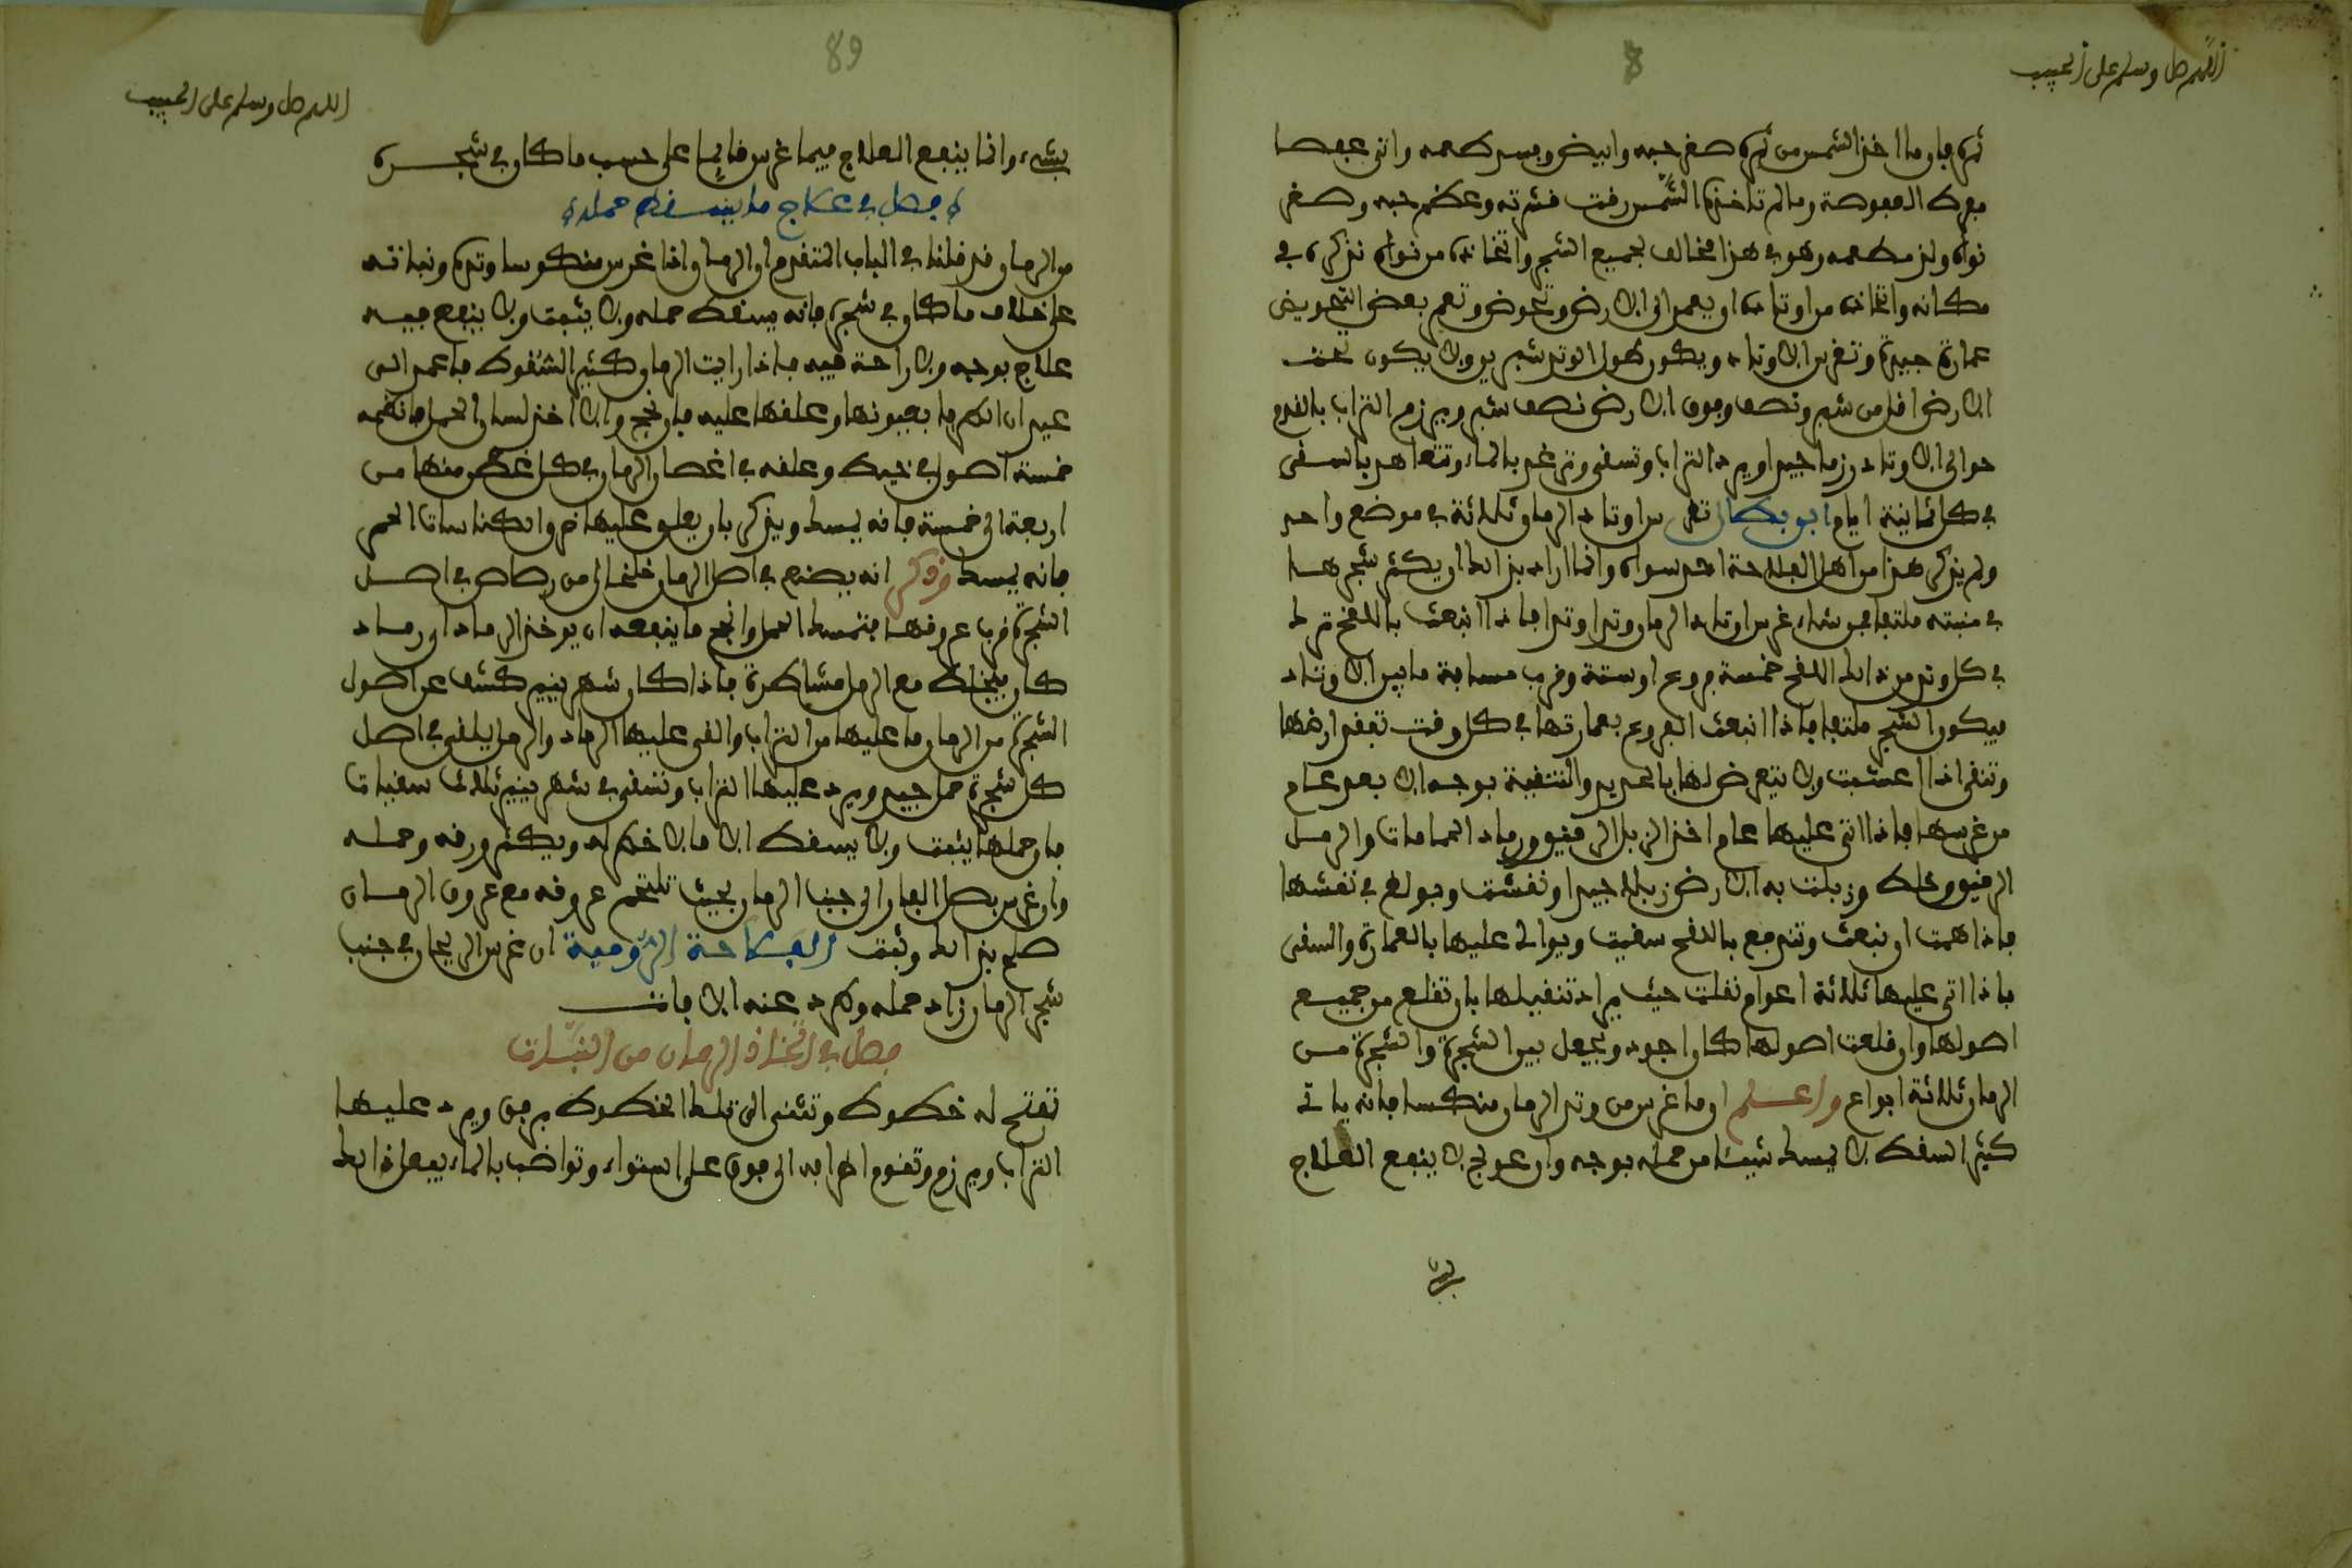 اللهم صل وسلم على الحبيب
ثمره فان ما اخذ الشمس من ثمره صغر حبه وابيض وفسد طعمه واتى عفصا
مفرط العفوصة وما لم تاخذه الشمس رقت قشرته وعظم حبه وصغر
نواه ولذ مطعمه وهو في هذا مخالف لجميع الشجر واتخاذه من نواه نذكره في
مكانه واتخاذه من اوتاده ان يعمد الى الارض وتحوض وتعمر بعض التحويض
عمارة جيدة وتغرس الاوتاد ويكون طول الوتد شبرين ولا يكون تحت
الارض اقل من شبر ونصف وفوق الارض نصف شبر ويرزم التراب بالقدم
حوالى الاوتاد رزما جيدا ويرد التراب وتسقى وترغد بالماء وتتعاهد بالسقى
في كل ثمانية ايام ابو بصال تغرس اوتاد الرمان ثلاثة في موضع واحد
ولم يذكر هذا من اهل الفلاحة احد سواه وانما اراد بذلك ان يكثر شجرها
في منبته ملتفا فمن شاء غرس اوتاد الرمان وتدا وتدا فاذا انبعث باللقح ترك
في كل وتد من ذلك اللقح خمسة فروع او ستة وقرب مسافة ما بين الاوتاد
فيكون الشجر ملتفا فاذا انبعث الفروع بعمارتها في كل وقت تعفن ارضها
وتنقى اذا اعشبت ولا يتعرض لها بالحديد والتنقية بوجه الا بعد عام
من غرسها فاذا اتى عليها عام اخذ الزبل الرقيق ورماد الحمامات والرمل
الرقيق وخلط وزبلت به الارض زبلا جيدا ونقشت وبولغ في نقشها
فاذا همت ان تبعث وتندفع باللقح سقيت ويوالى عليها بالعمارة والسقى
فاذا اتى عليها ثلاثة اعوام نقلت حيث يراد تنقيلها بان تقلع من جميع
اصولها وان قلعت اصولها كان اجود ويجعل بين الشجرة والشجرة من
الرمان ثلاثة ابواع واعلم ان ما غرس من وتد الرمان منكسا فانه ياتي
كثير السقط لا يمسك شيئا من حمله بوجه وان عولج لا ينفع العلاج
89
اللهم صل وسلم على الحبيب
بشيء وانما ينفع العلاج فيما غرس قائما على حسب ما كان في شجره
فصل في علاج ما يسقط حمله
من الرمان قد قلنا في الباب المتقدم ان الرمان اذا غرس منكوسا وتده ونباته
على خلاف ما كان في شجره فانه يسقط حمله ولا يثبت ولا ينفع فيه
علاج بوجه ولا راحة فيه فاذا رايت الرمان كثير السقوط فاعمد الى
عيدان الكرم بعيونها وعلقها عليه فان نجح والا اخذ لسان الحمل فانظمه
خمسة اصول في خيط وعلقه في اغصان الرمان في كل غصن منها من
اربعة الى خمسة فانه يمسك ويذكر بان يعلق عليها ضروا كناسات الحمر
فانه يمسك وذكر انه يصنع في اصل الرمان خلخال من رصاص في اصل
الشجرة قرب عروقها فتمسك الحمل وانجح ما ينفعه ان يوخذ الرماد اي رماد
كان فيخلط مع الرمل مشاطرة فاذا كان شهر ينير كشف عن اصول
الشجرة من الرمان ما عليها من التراب والقى عليها الرماد والرمل يلقى في اصل
كل شجرة حمل جيد ويرد عليها التراب وتسقى في شهر ينير ثلاث سقيات
فان حملها يثبت ولا يسقط الا ما لا خطر له ويكثر ورقه وحمله
وان غرس بصل الفار الى جنب الرمان بحيث تلتحم عروقه مع عروق الرمان
صلح بذلك وثبت الفلاحة الرومية ان غرس الريحان في جنب
شجر الرمان زاد حمله وطرد عنه الافات
فصل في اتخاذ الرمان من النبات
تفتح له خطوط وتثنى الى تلك الخطوط برفق ويرد عليها
التراب ويرزم وتقوم اطرافه الى فوق على استواء وتواضب بالماء يفعل ذلك